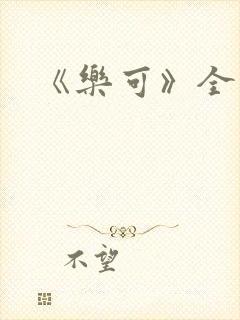 《樂可》全
不望